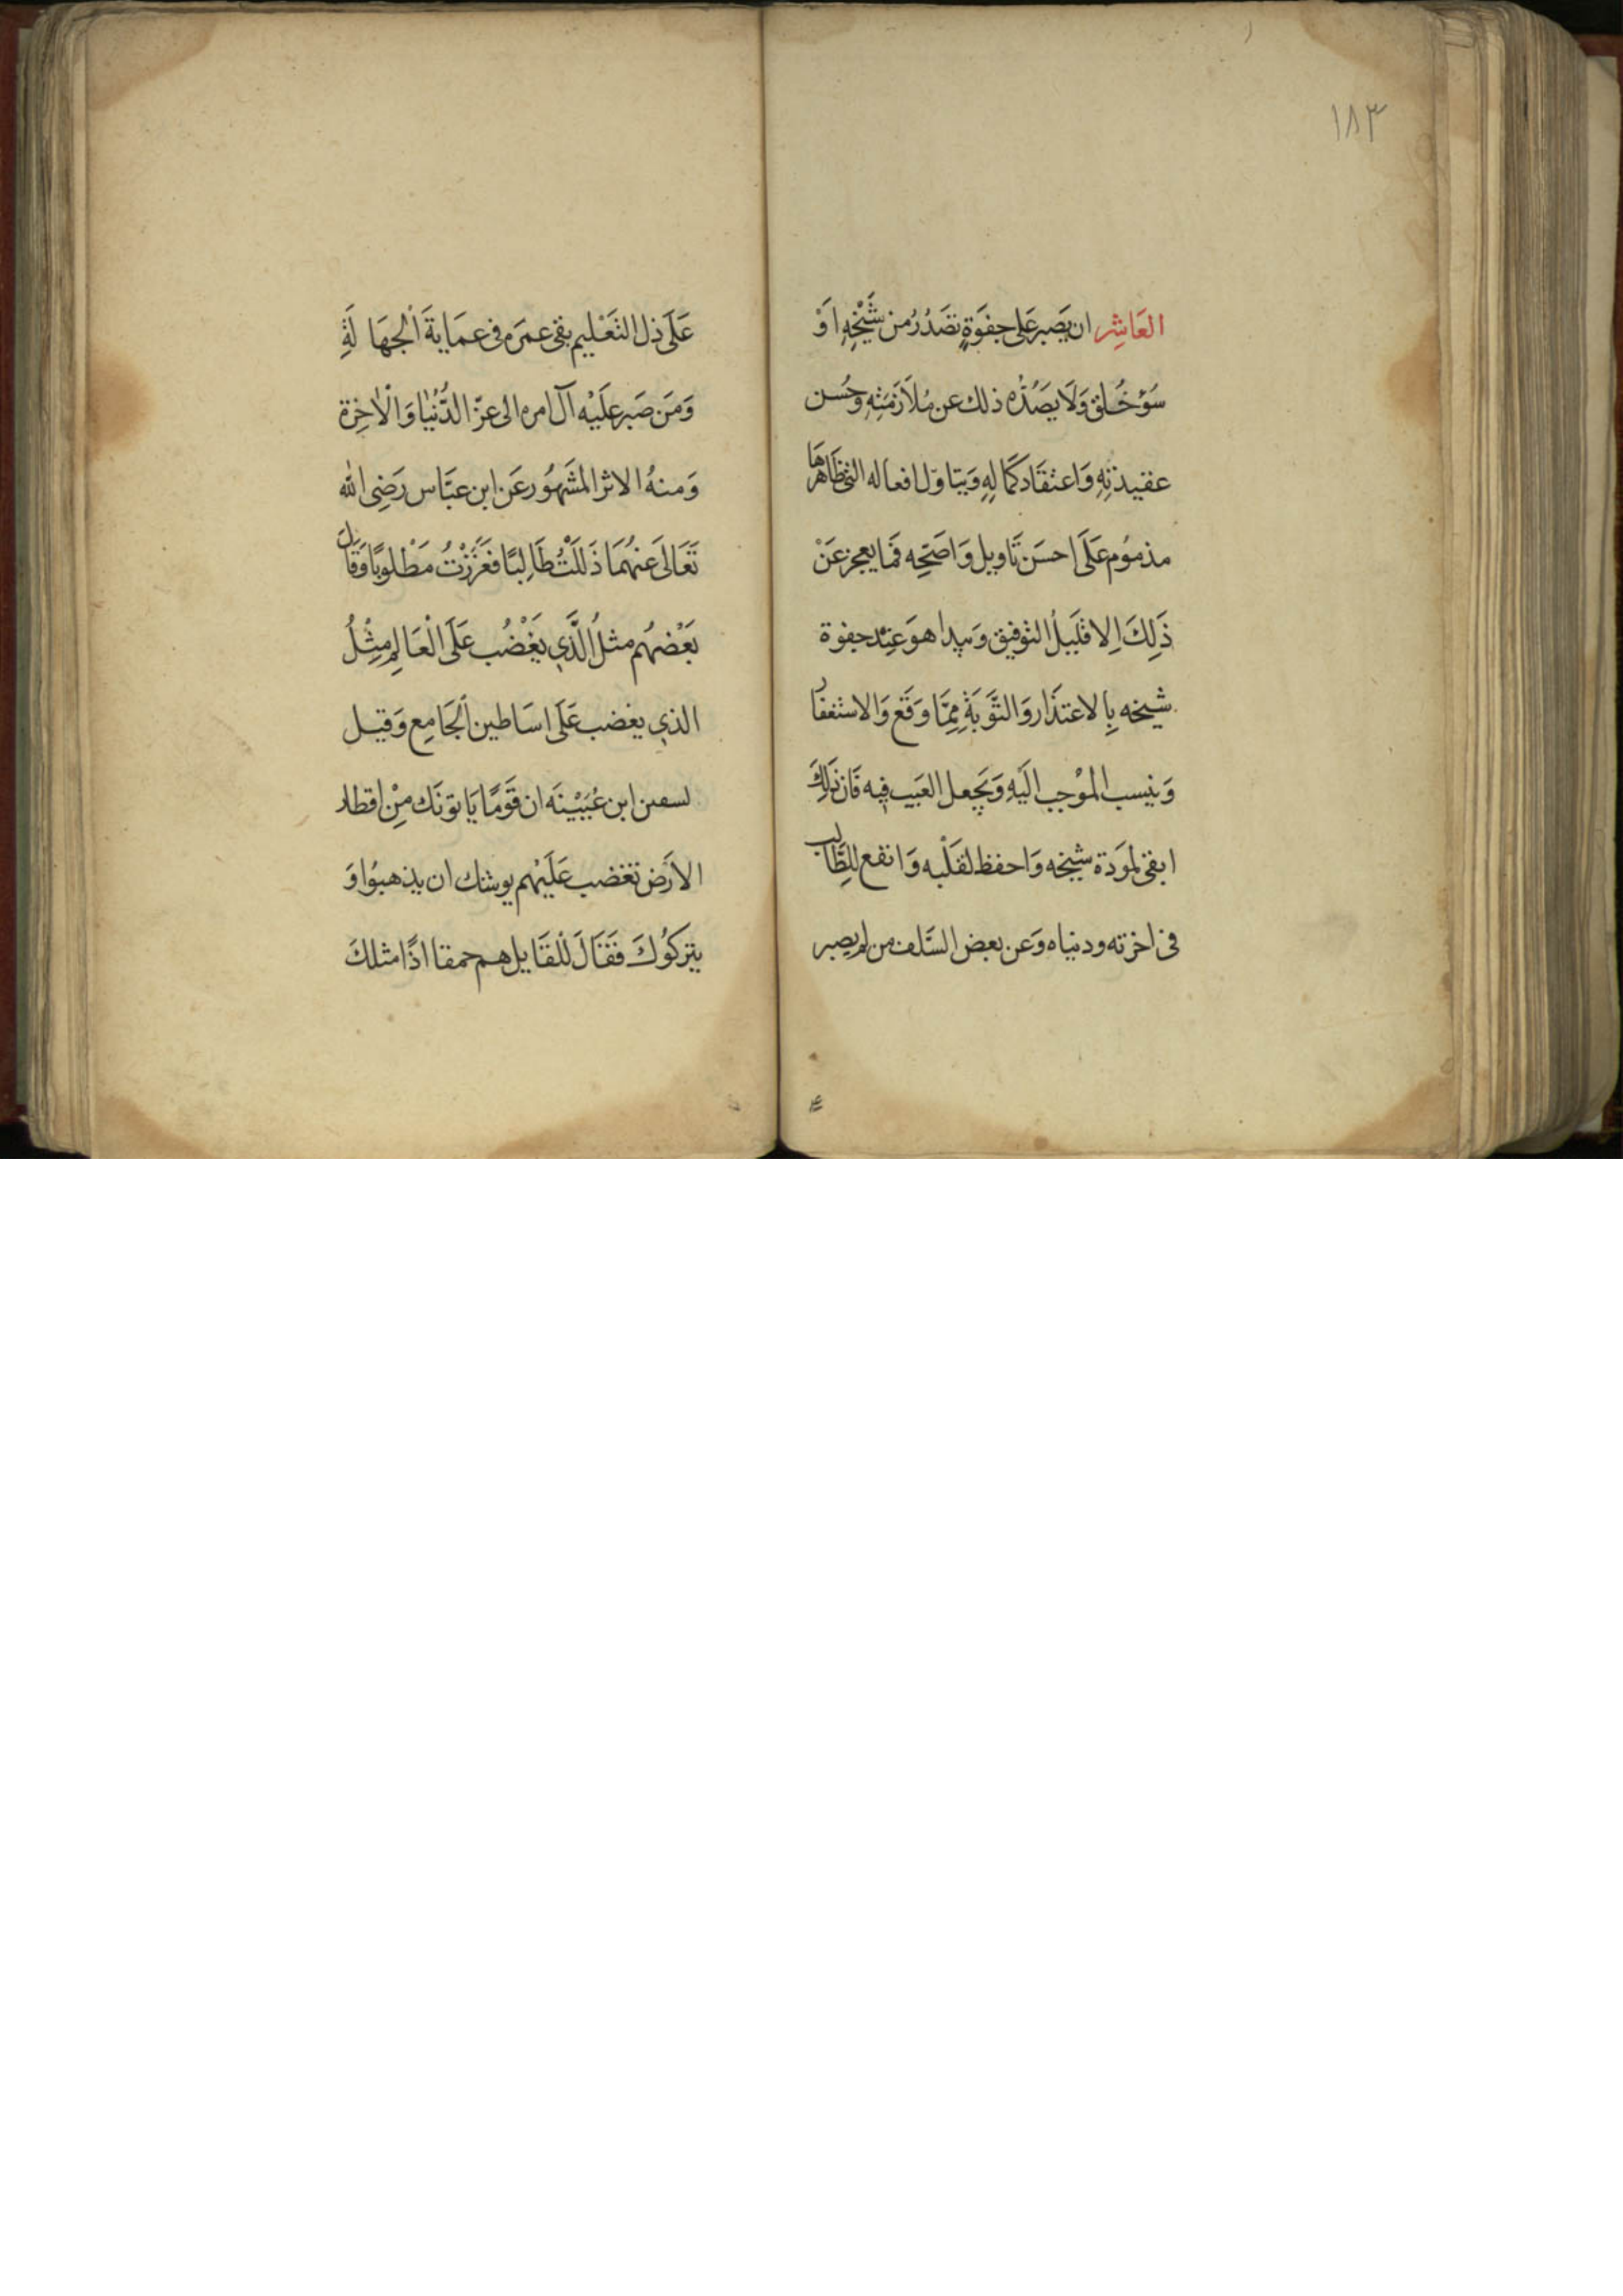 ١٨٣
العَاشِر ان يَصبر عَلى جفوَةٍ تصَدُرُ من شَيْخِهِ اوْ
سُوْ خُلق وَلَا يصَدُّه ذلك عن مُلَازمَتِهِ وحُسن
عقيدتِهِ وَاعتقَاد كمَالِهِ وَيتاوّل افعاله التى ظَاهرهَا
مذمُوم عَلَى احسَن تَاويل وَاصَحّه فمَا يعجز عَنْ
ذَلِكَ اِلا قَليلُ التوفيق وَيبدا هوَ عِنْد جفوة
شيخه بِالاعتذَار وَالتَّوبَةِ مِمَّا وَقَع وَالاستغفار
وَينسب المُوْجب اليَهِ وَيجعل العَيب فيه فَان ذَلِكَ
ابقى لمَودَة شيخه وَاحفظ لقَلْبه وَانفع للِطَّالب
فى اخرته ودنياه وَعن بعض السَّلف من لم يصبر
عَلَى ذل التَعْليم بقى عمرَه فى عمَايةَ الْجهَالَةِ
وَمَن صَبر علَيْه آل امره الى عزّ الدُّنْيَا وَالْاٰخِرَة
وَمنهُ الاثر المشَهُور عَن ابن عبَّاس رَضِى الله
تَعَالىَ عَنهُمَا ذَلَلْتُ طَالِبًا فَعَزَزْتُ مَطْلوبًا وَقَالَ
بَعْضهُم مثلُ الَّذِي يَغْضُب عَلَى الْعَالِمِ مِثْلُ
الذي يغضب عَلَى اسَاطين الْجَامِع وَقيل
لسفين ابن عُيَيْنَه ان قَومًا يَاتونَك مِنْ اقطار
الاَرض تغضب عَلَيْهم يوشك ان يذهبوُا وَ
يتركوُكَ فَقَالَ لْلقَايل هم حمقا اذًا مثلكَ